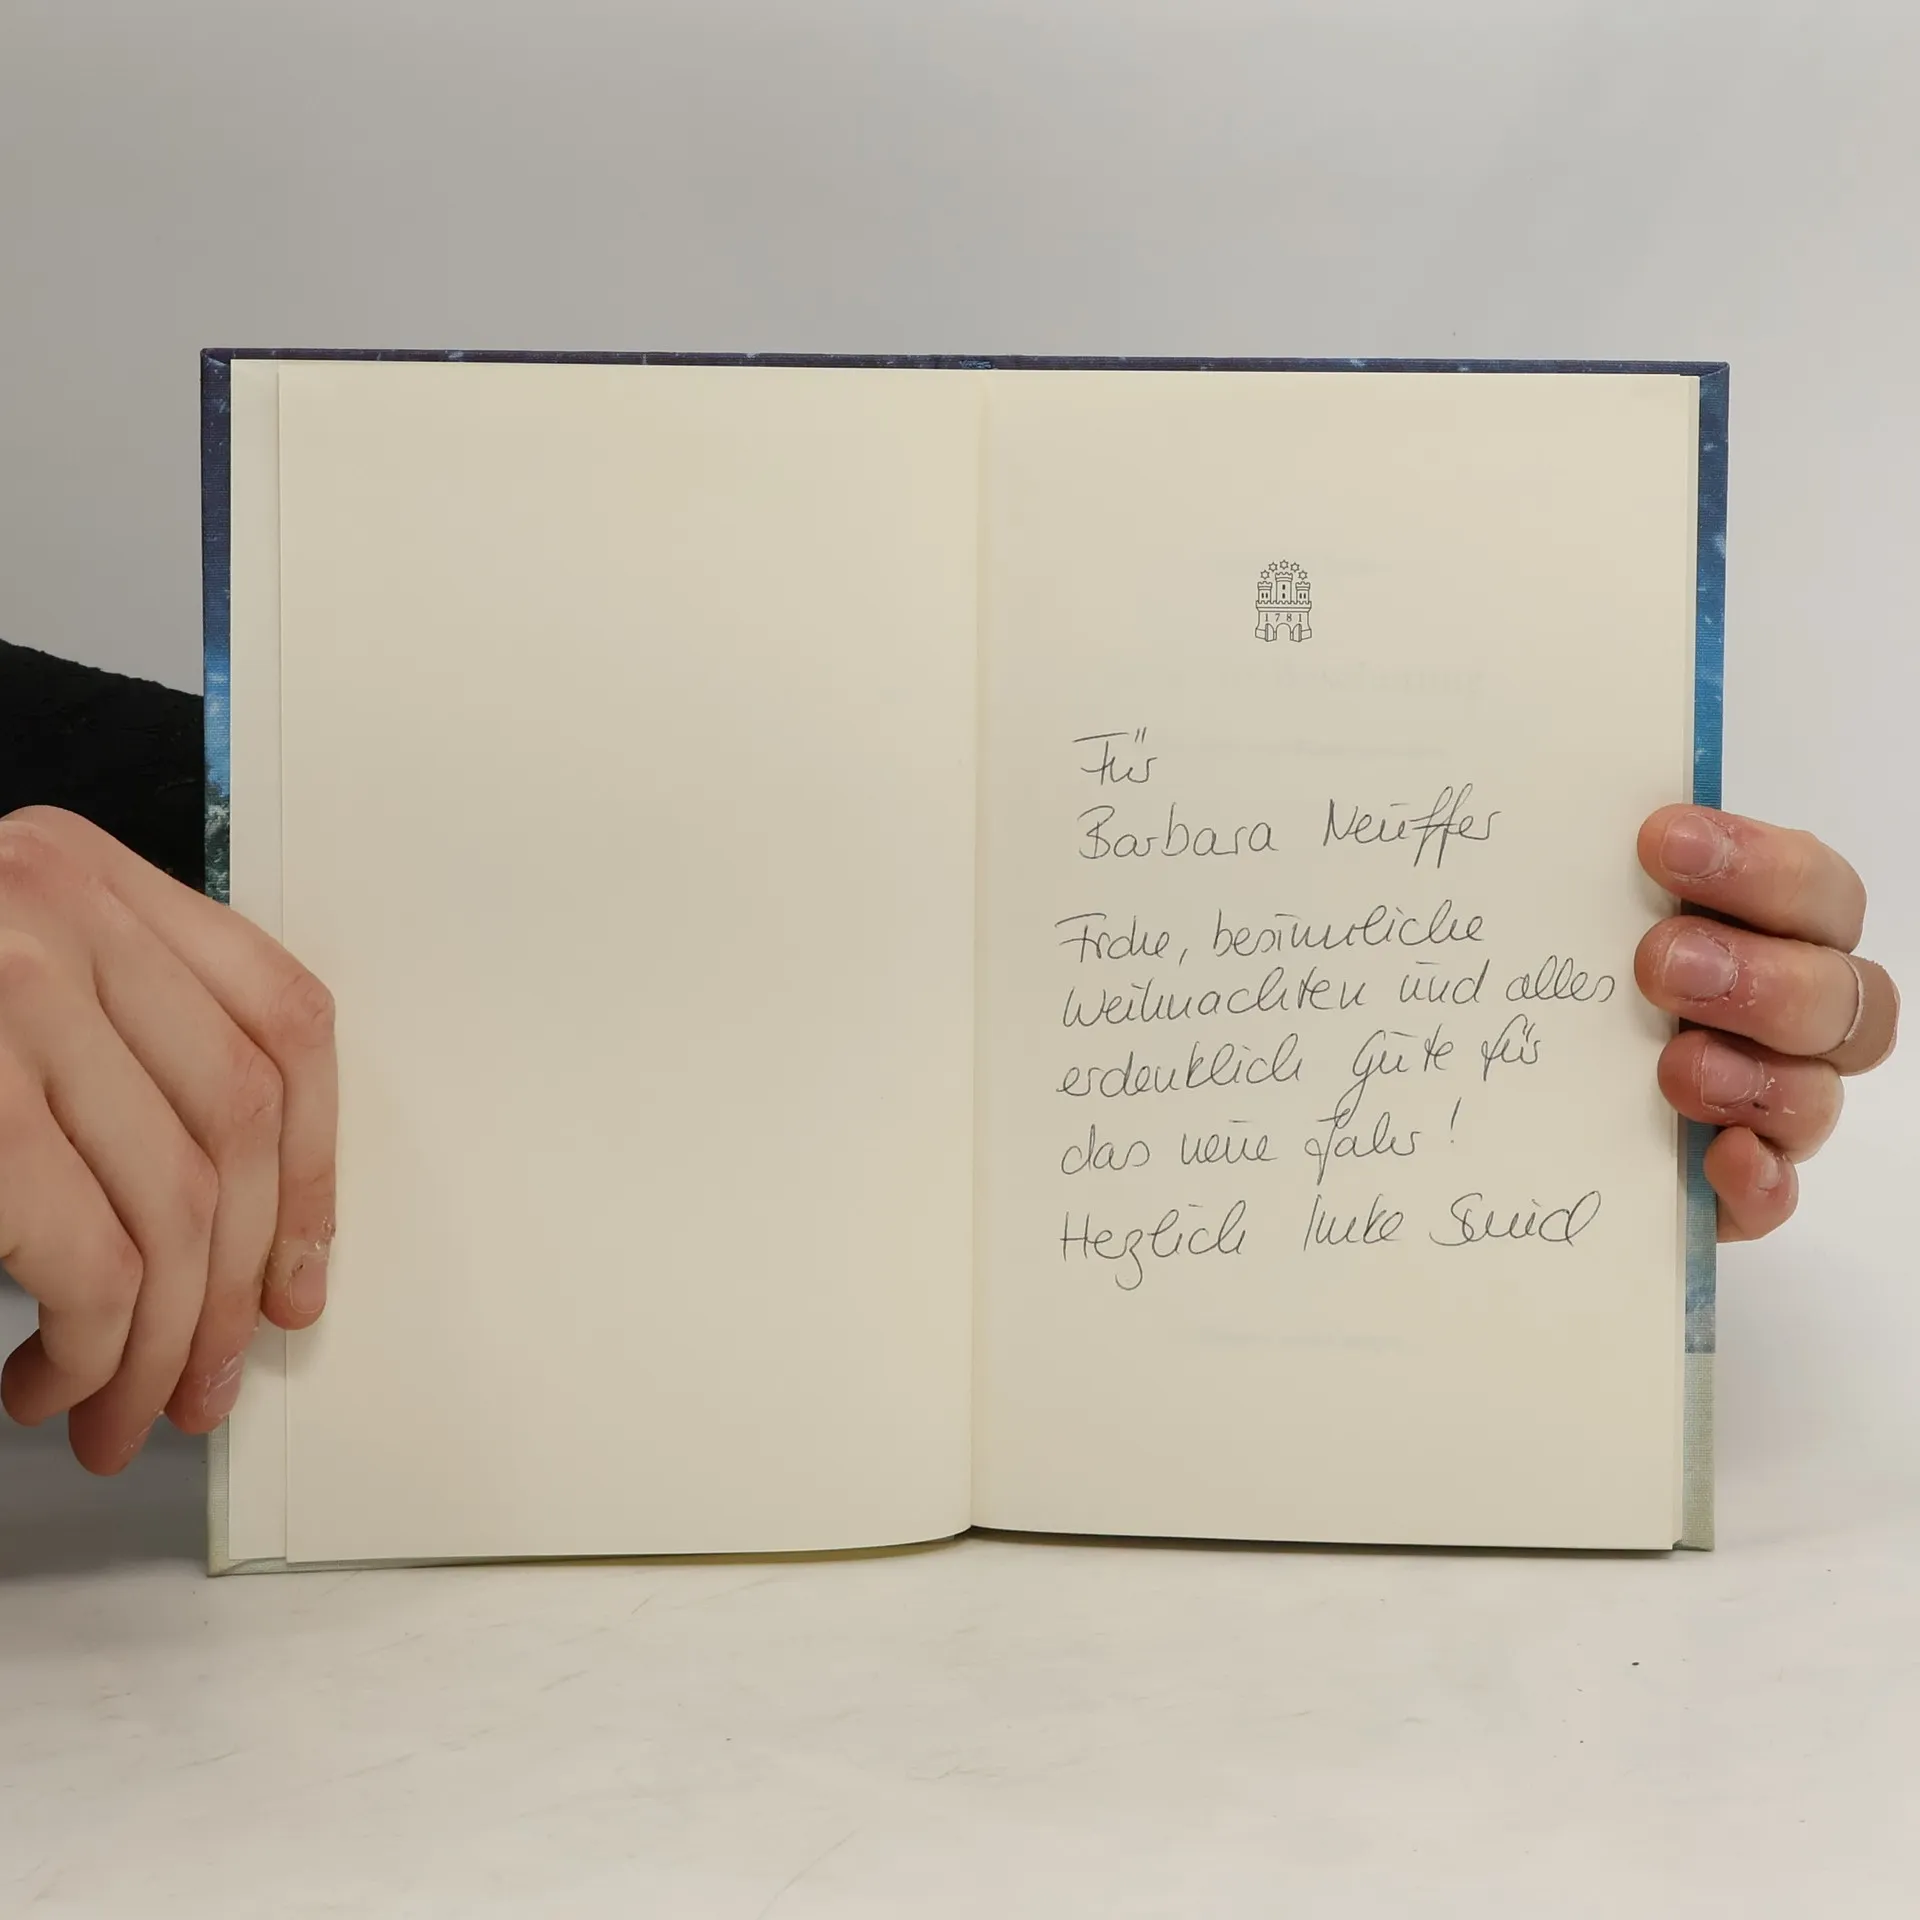 1781
Für
Barbara Neuffer
Frohe, besinnliche
Weihnachten und alles
erdenklich Gute für
das neue Jahr!
Herzlich Imke